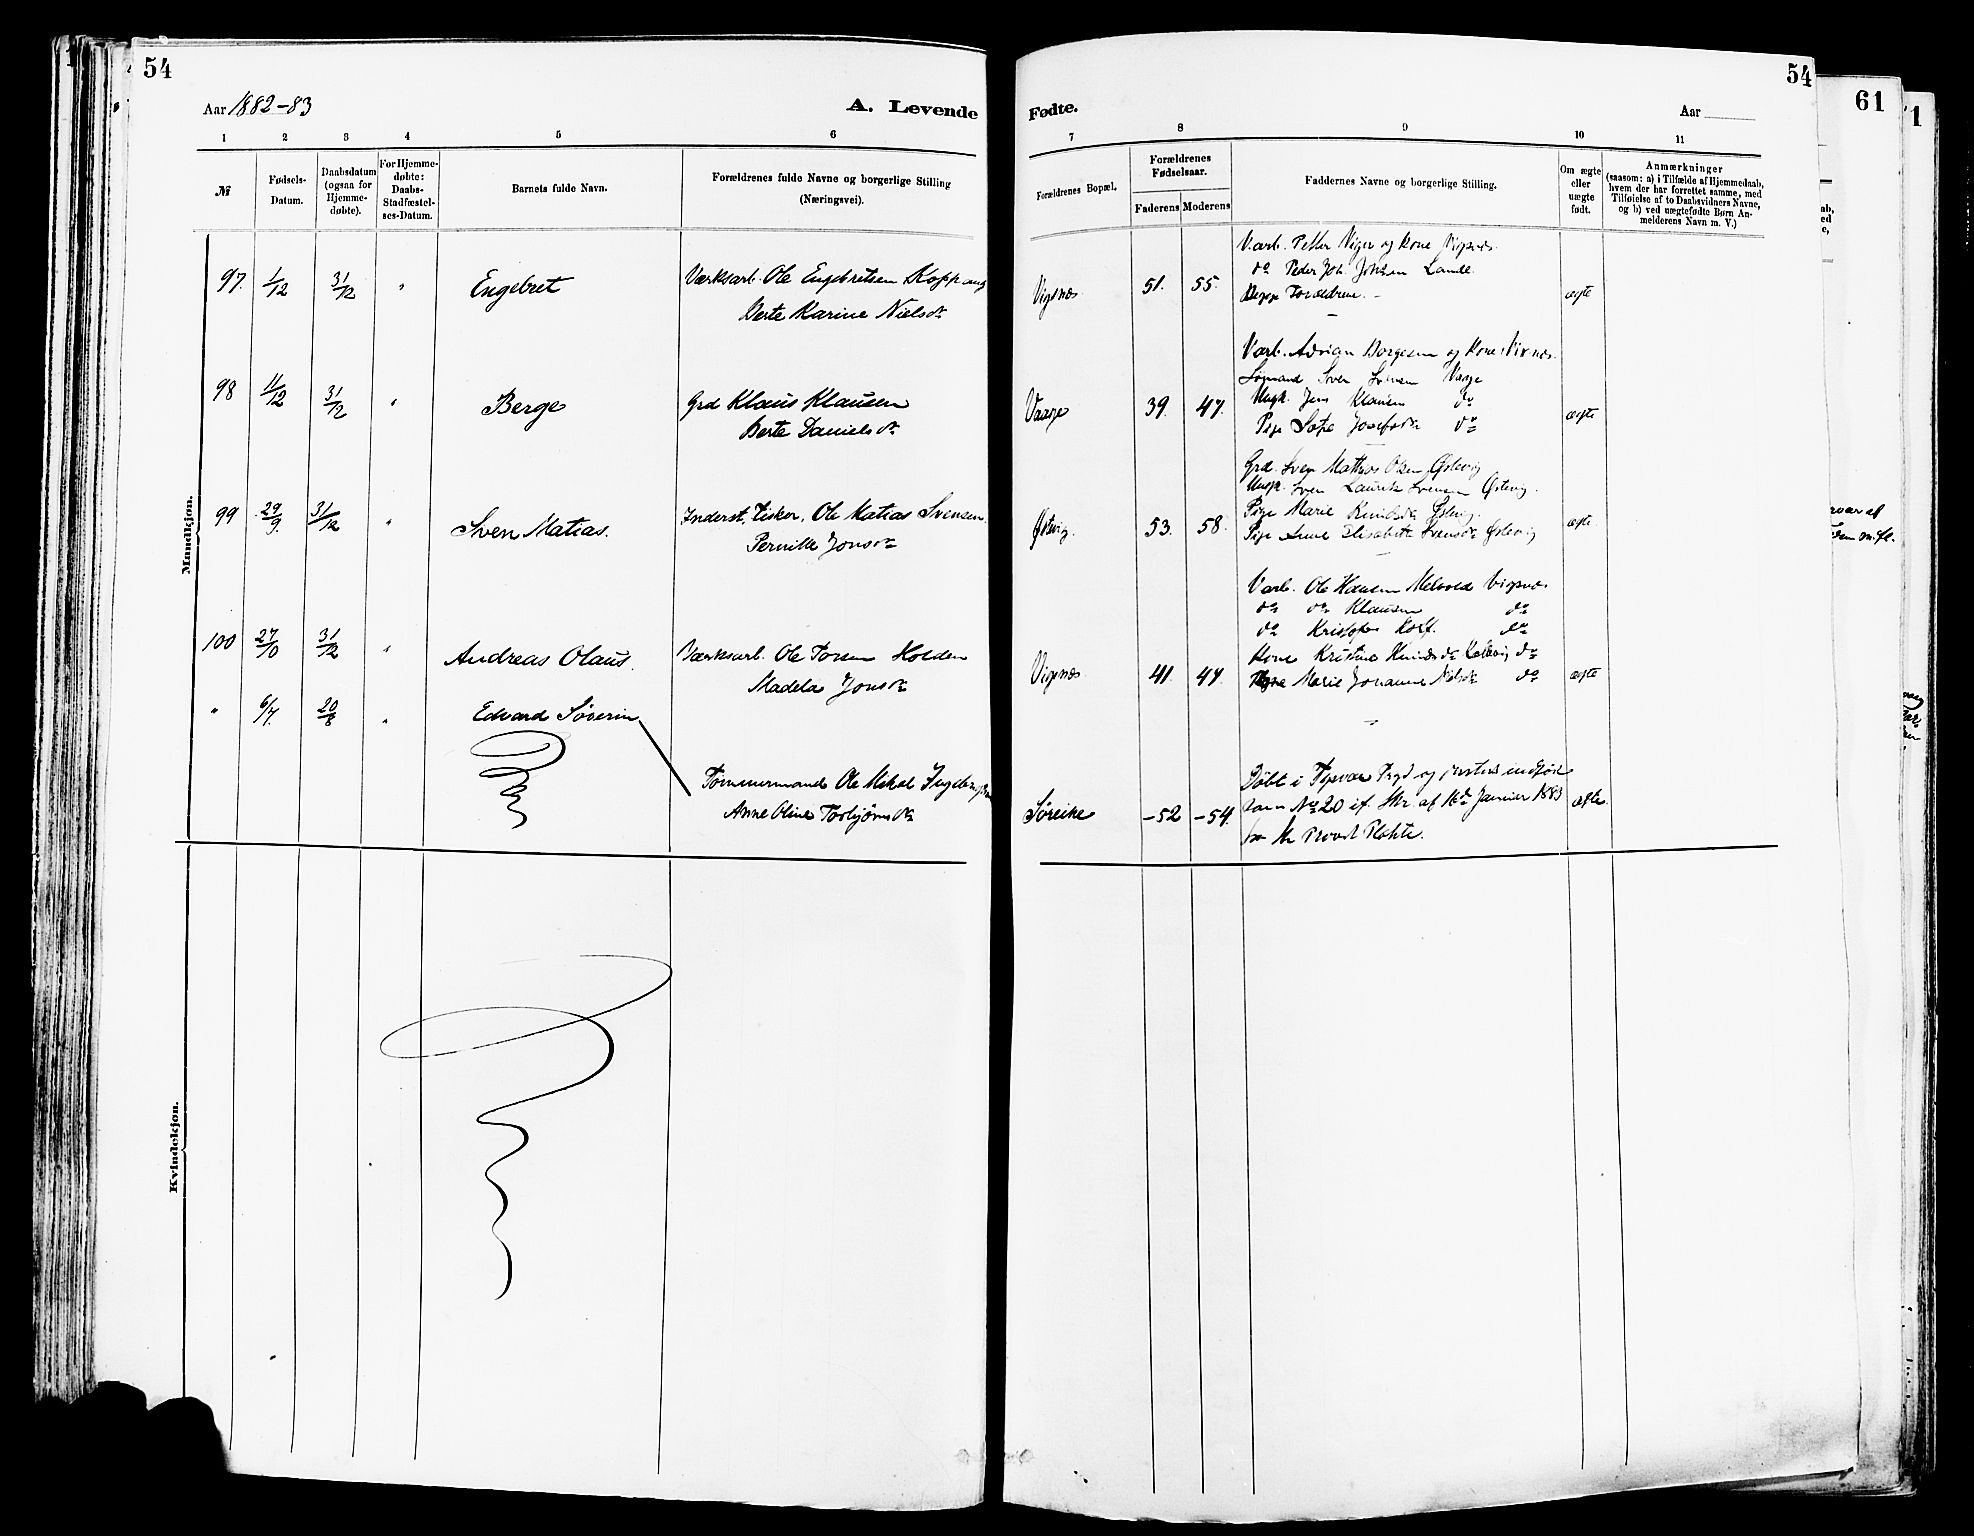 54
54
61
1
Aar 1882-83
A. Levende
Fødte.
Aar
1 2 3 4 5 6
7 8 9 10 11
№
Fødsels-
Datum.
Daabsdatum
(ogsaa for
Hjemme-
døbte).
For Hjemme-
døbte:
Daabs-
Stadfæstel-
ses-Datum.
Barnets fulde Navn.
Forældrenes fulde Navne og borgerlige Stilling
(Næringsvei).
Forældrenes Bopæl.
Forældrenes
Fødselsaar.
Faderens Moderens
Faddernes Navne og borgerlige Stilling.
Om ægte
eller
uægte
født.
Anmærkninger
(saasom: a) i Tilfælde af Hjemmedaab,
hvem der har forrettet samme, med
Tilføielse af to Daabsvidners Navne,
og b) ved uægtefødte Børn An-
melderens Navn m. V.)
Mandkjøn.
97. 1/12 31/12 " Engebret
Værksarb. Ole Engebretsen Koppang
Berte Karine Nielsdr
Vigsnæs 51. 55.
Varb. Petter Viger og Kone Vigsnæs.
do Peder Joh. Johsen
Begge Forældrene.
ægte
98 11/12 31/12 " Berge
Grd Klaus Klausen
Berte Danielsdr
Vaage 39. 47.
Varb. Adrian Borgesen og Kone
Sømand Sven Vaage
Ungk. Jens Klausen do
Pige do
ægte
99 29/9. 31/12 " Sven Matias.
Inderst, Fisker, Ole Matias Svensen.
Pernille Jonsdr
Østevig. 53. 58.
Grd. Sven Mathias Olsen Østevig
Ungk. Sven Laurits Svensen Østevig.
Pige Marie Knudsdr Østevig.
Pige Anne Elisabeth Svensdr Østevig
ægte.
100 27/10 31/12 " Andreas Olaus.
Værksarb. Ole Torsen Holden
Madela Jonsdr
Vigsnæs 41. 47.
Varb. Ole Hansen Melvold Vigsnæs
do do Klausen do
do do
Kone Kristine Knudsdr do
Marie Johanne Nielsdr do
ægte
" 6/7. 20/8 " Edvard Søverin
Tømmermand Ole Mikal
Anne Oline Torbjørnsdr
Søreike -52 -54.
Døbt i Tysvær
No 20 Skr. af 16de Januar 1883
fra Hr Provst
ægte.
Kvindekjøn.